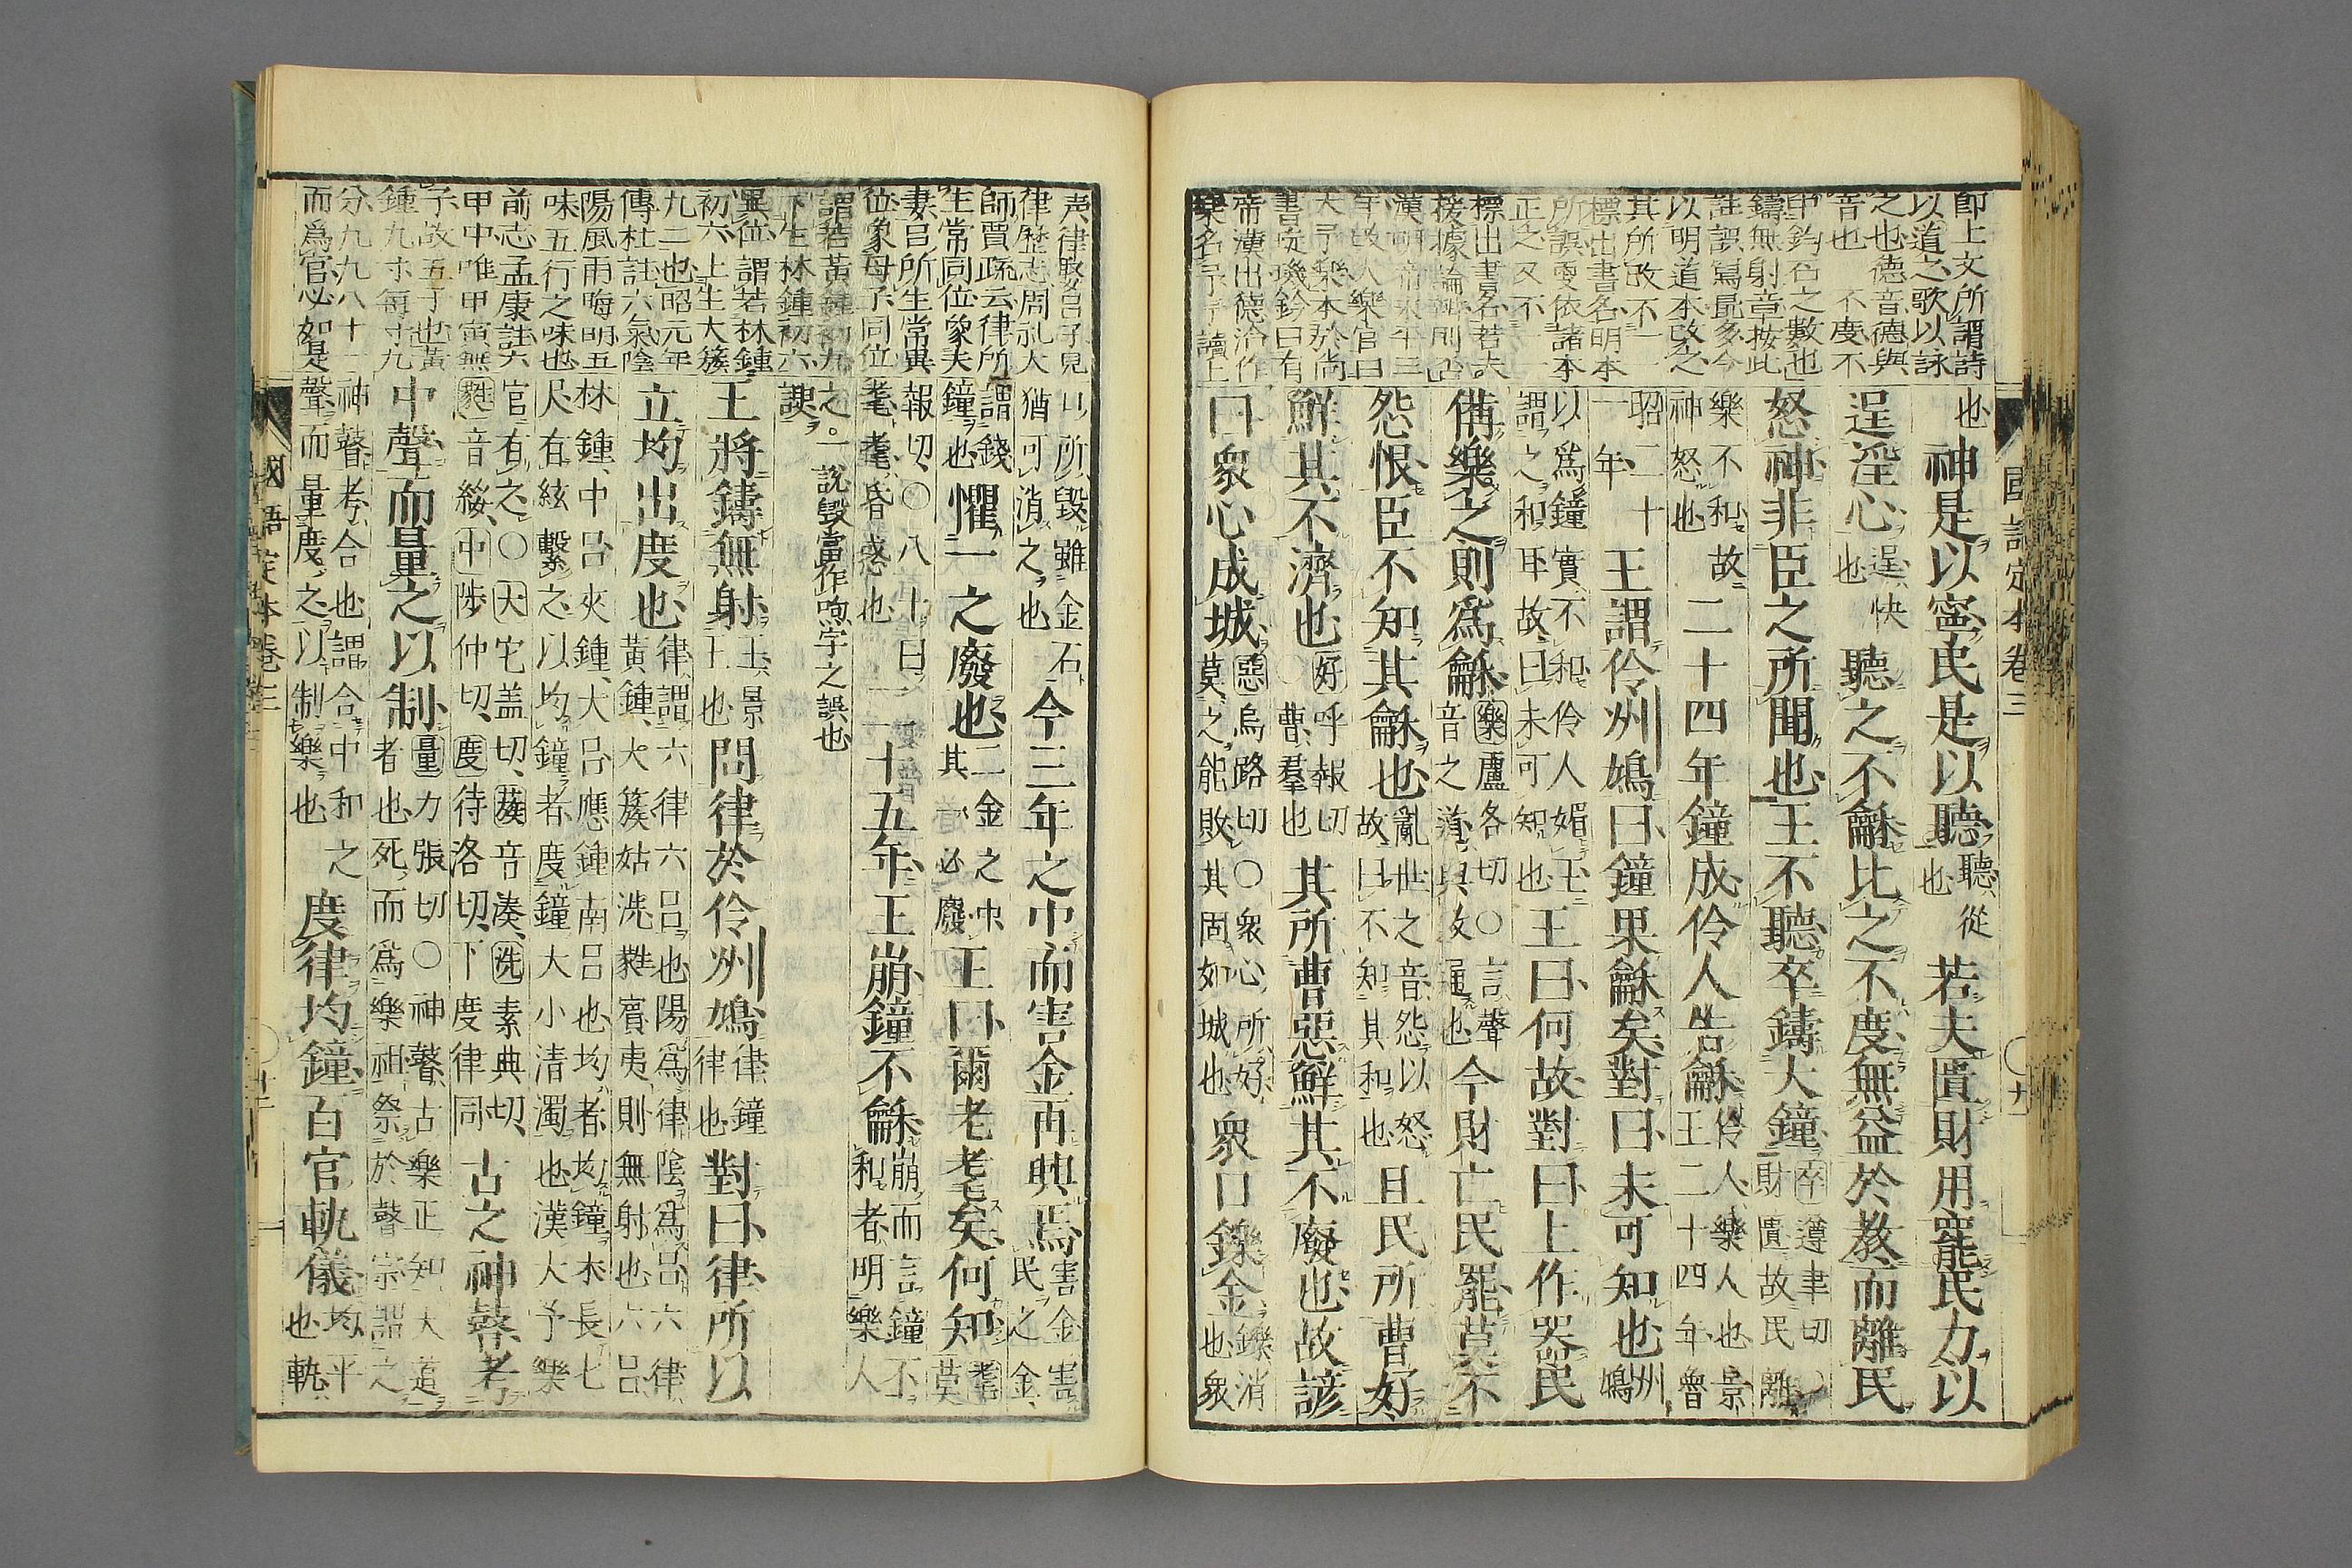 國語定本卷三
即上文所謂詩
以道之歌以詠
之也德音德與
音也 不度不
中鈞石之數也
鑄無射章按此
註誤寫最多今
以明道本改之
其所改不一一
標出書名明本
所誤更依諸本
正之又不一一
標出書名若夫
援據論辨則否
漢明帝永平三
年改大樂官曰
大予樂本於尚
書璇璣鈐曰有
帝漢出德洽作
樂名予予讀上
也神是以寧民是以聽聽從也若夫匱財用罷民力以
逞淫心逞快也聽之不龢比之不度無益於教而離民
怒神非臣之所聞也王不聽卒鑄大鐘卒遵聿切○財匱故民離
樂不和故神怒也二十四年鐘成伶人告龢伶人樂人也景王二十四年魯
昭二十一年王謂伶州鳩曰鐘果龢矣對曰未可知也州鳩
以爲鐘實不和伶人媚王謂之和耳故曰未可知也王曰何故對曰上作器民
備樂之則爲龢樂盧各切○言聲音之道與政通也今財亡民罷莫不
怨恨臣不知其龢也亂世之音怨以怒故曰不知其和也且民所曹好
鮮其不濟也好呼報切○曹羣也其所曹惡鮮其不廢也故諺
曰衆心成城惡烏路切○衆心所好莫之能敗其固如城也衆口鑠金鑠消也衆
声律娶呂子見
律歴志周礼大
師賈疏云律所
生常同位象夫
妻呂所生常異
位象母子同位
謂若黃鐘初九
下生林鍾初六
異位謂若林鍾
初六上生大簇
九二也昭元年
傳杜註六氣陰
陽風雨晦明五
味五行之味也
前志孟康註六
甲中唯甲寅無
子故五丁也黃
鍾九寸每寸九
分九九八十一
而爲宮必如是
口所毀雖金石猶可消之也今三年之中而害金再興焉害金害民之金
謂錢鐘也懼一之廢也二金之中其一必廢王曰爾老耄矣何知耄莫
報切○八十曰耄耄昏惑也二十五年王崩鐘不龢崩而言鐘不和者明樂人
之諛一說毀當作喣字之誤也
王將鑄無射王景王也問律於伶州鳩律鐘律也對曰律所以
立均出度也律謂六律六呂也陽爲律陰爲呂六律黃鍾大簇姑洗蕤賓夷則無射也六呂
林鍾中呂夾鍾大呂應鍾南呂也均者均鐘木長七尺有絃繫之以均鐘者度鐘大小清濁也漢大予樂
官有之○大它盖切簇音湊洗素典切蕤音緌中陟仲切度待洛切下度律同古之神瞽考
中聲而量之以制量力張切○神瞽古樂正知天道者也死而爲樂祖祭於瞽宗謂之
神瞽考合也謂合中和之聲而量度之以制樂也度律均鐘百官軌儀均平也軌
國語定本卷三